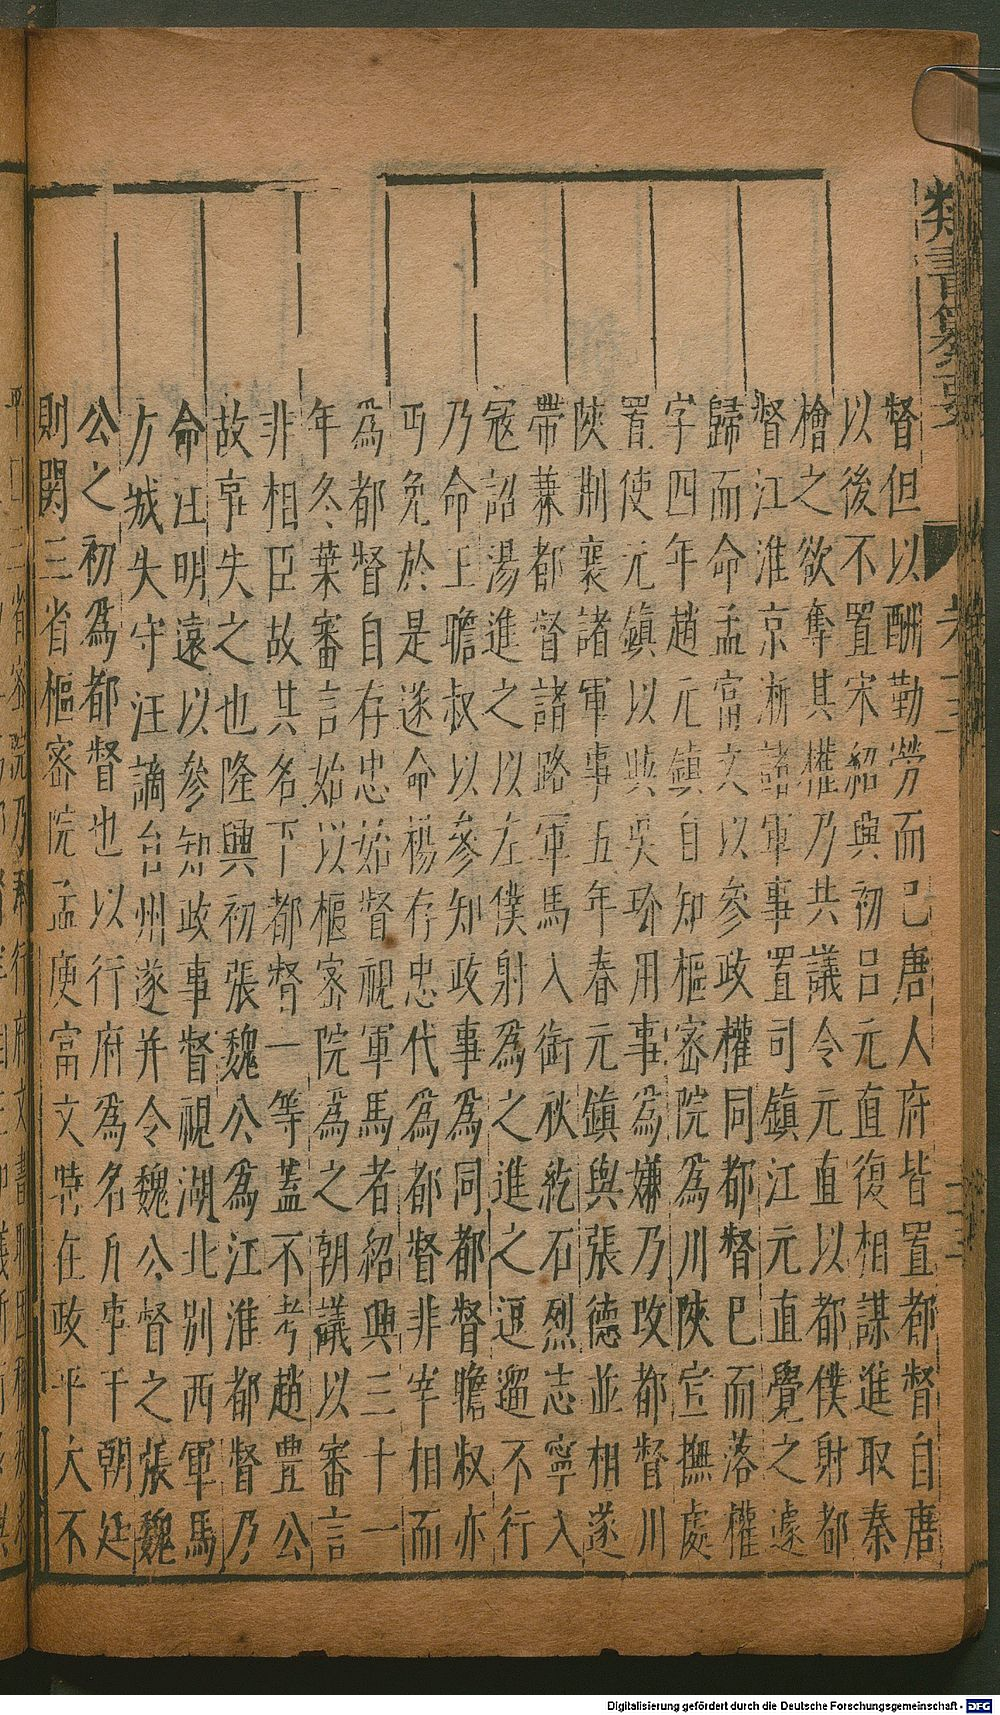 類書纂要
卷十三
二三
督但以酬勤勞而已唐人府皆置都督自唐
以後不置宋紹興初吕元直復相謀進取秦
檜之欲奪其權乃共議令元直以都僕射都
督江淮京浙諸軍事置司鎮江元直覺之遽
歸而命孟富文以參政權同都督已而落權
字四年趙元鎮自知樞密院為川陝宣撫處
置使元鎮以與吳玠用事為嫌乃改都督川
陝荆襄諸軍事五年春元鎮與張德並相遂
帶兼都督諸路軍馬入銜秋紇石烈志寧入
寇詔湯進之以左僕射為之進之逗遛不行
乃命王瞻叔以參知政事為同都督瞻叔亦
丐免於是遂命楊存忠代為都督非宰相而
為都督自存忠始督視軍馬者紹興三十一
年冬葉審言始以樞密院為之朝議以審言
非相臣故其名下都督一等蓋不考趙豊公
故事失之也隆興初張魏公為江淮都督乃
命汪明遠以參知政事督視湖北别西軍馬
方城失守汪謫台州遂并令魏公督之張魏
公之初為都督也以行府為名凡事干朝廷
則関三省樞密院孟庾富文時在政平大不
Digitalisierung gefördert durch die Deutsche Forschungsgemeinschaft - DFG